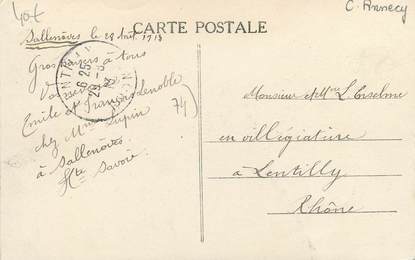 40€
C. Annecy
CARTE POSTALE
Sallenôves le 28 Août 1913
Gros baisers à tous
Vos
Emile et François Lenoble
chez Mme Lupin
à Sallenôves
Hte Savoie
74
6 25
29
13
Monsieur et Mme L. Enselme
en villégiature
à Lentilly
Rhône